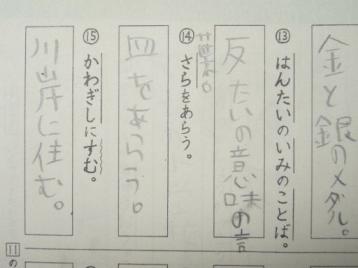 金と銀のメダル。
⑬はんたいのいみのことば。
反たいの意味の言
葉。
⑭さらをあらう。
皿をあらう。
⑮かわぎしにすむ。
川岸に住む。
⑪
の